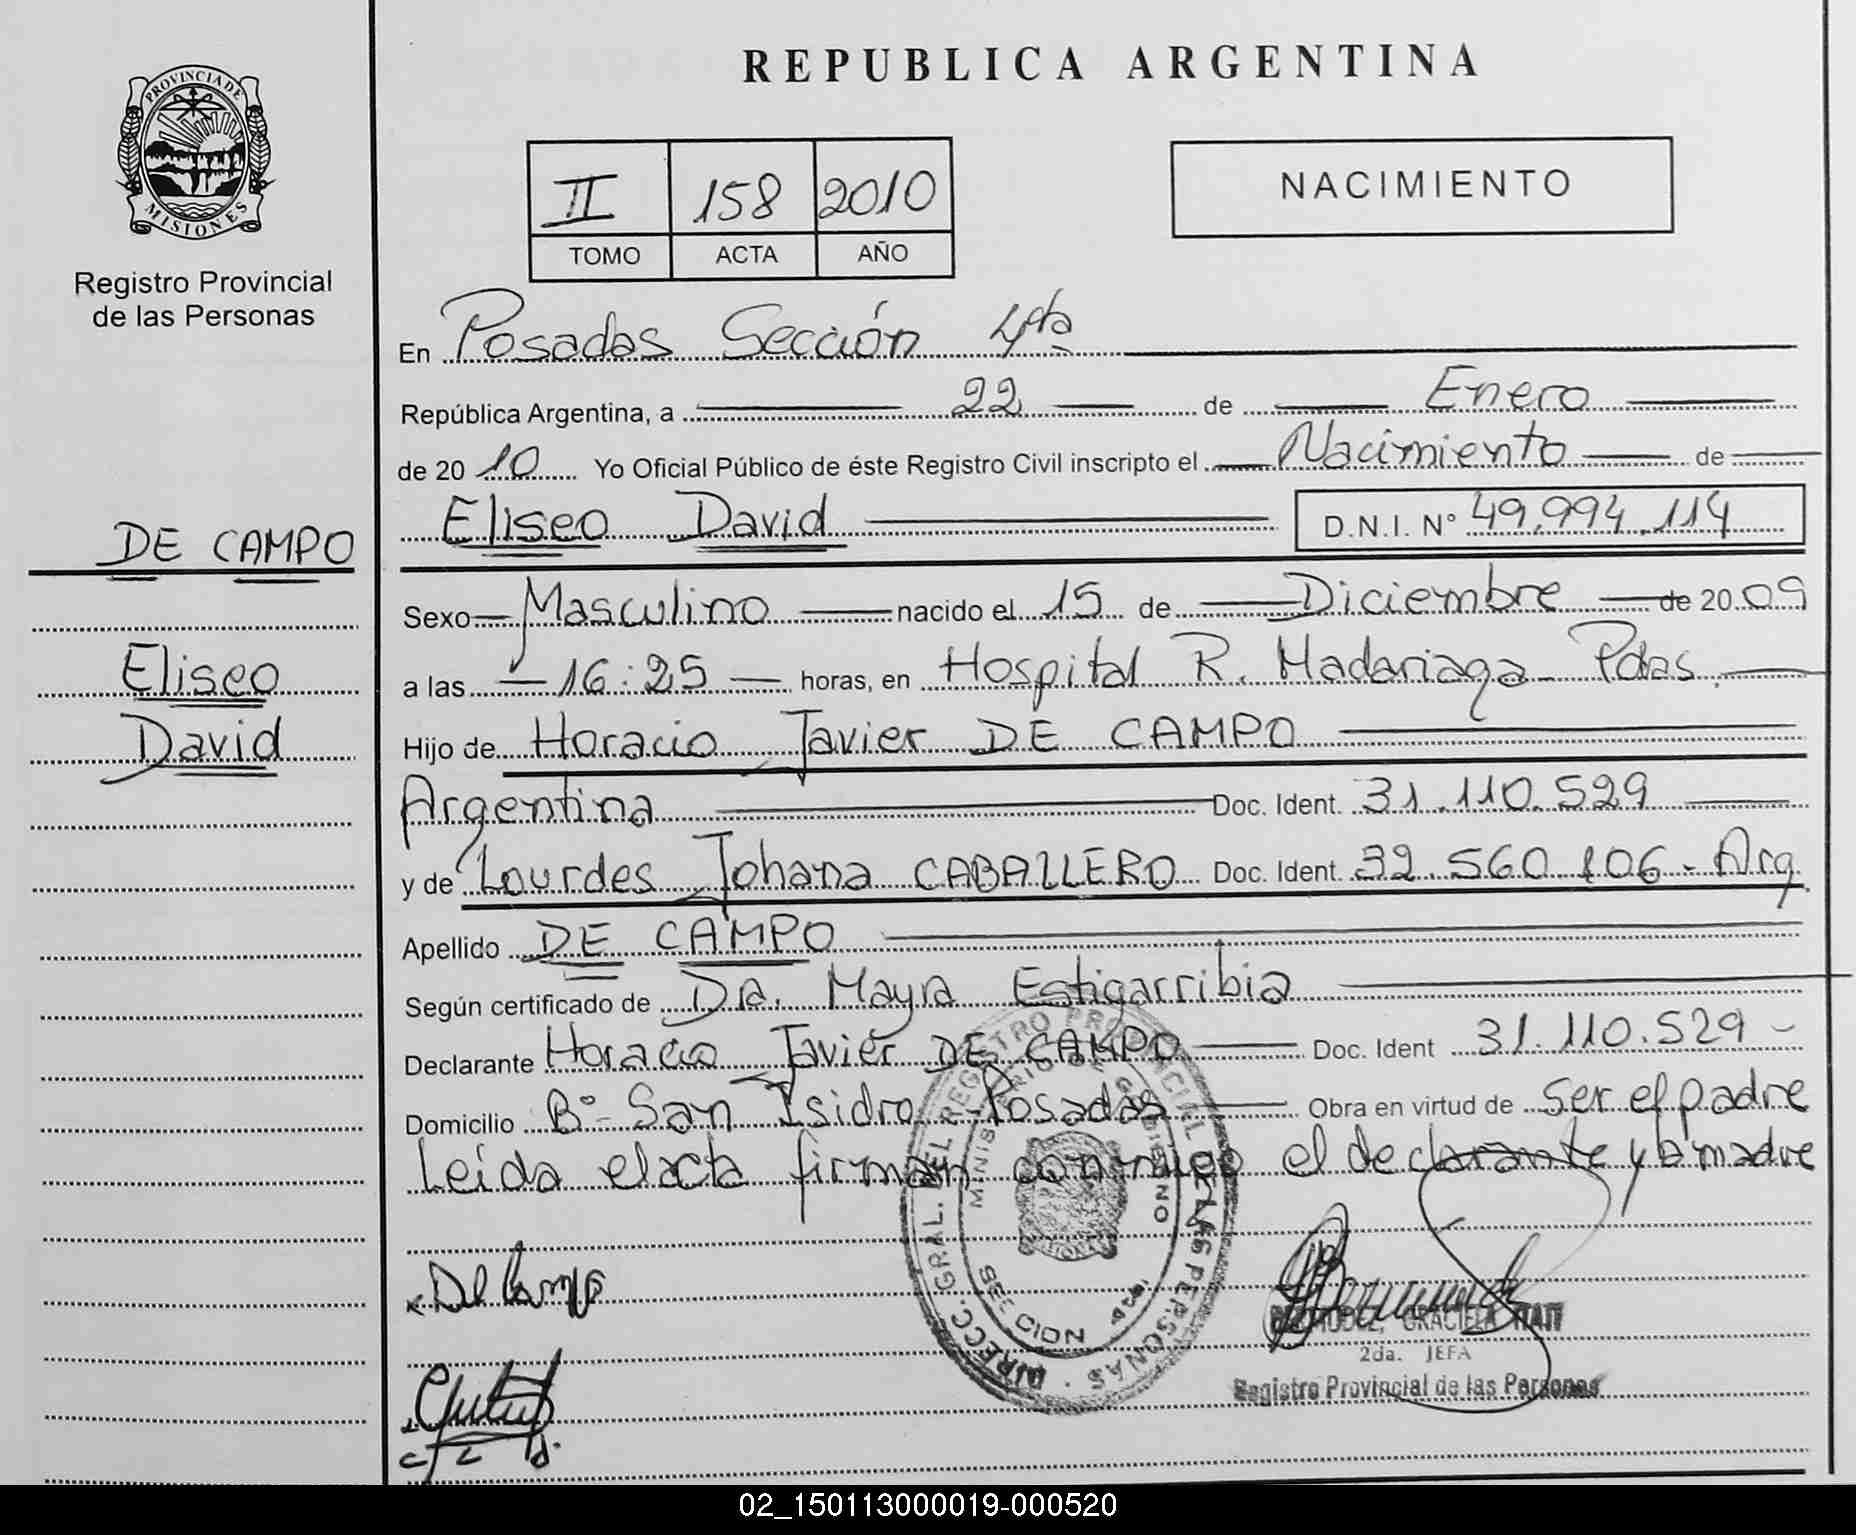 PROVINCIA DE
MISIONES
Registro Provincial
de las Personas
DE CAMPO
Eliseo
David
REPUBLICA ARGENTINA
II 158 2010
TOMO ACTA AÑO
NACIMIENTO
En Posadas Sección 4ta
República Argentina, a 22 de Enero
de 2010 Yo Oficial Público de éste Registro Civil inscripto el Nacimiento de
Eliseo David D.N.I. N° 49.994.114
Sexo Masculino nacido el 15 de Diciembre de 2009
a las 16:25 horas, en Hospital R. Madariaga Pdas.
Hijo de Horacio Javier DE CAMPO
Argentina Doc. Ident. 31.110.529
y de Lourdes Johana CABALLERO Doc. Ident. 32.560.106 - Arg.
Apellido DE CAMPO
Según certificado de Dra. Mayra Estigarribia
Declarante Horacio Javier DE CAMPO Doc. Ident 31.110.529 -
Domicilio B° San Isidro Posadas Obra en virtud de ser el padre
Leida el acta firman conmigo el declarante y la madre
DIRECC. GRAL. DEL REGISTRO PROVINCIAL DE LAS PERSONAS
MINISTERIO DE GOBIERNO
SECCION 4ta.
De Campo
BERMUDEZ, GRACIELA ITATI
2da. JEFA
Registro Provincial de las Personas
02_150113000019-000520